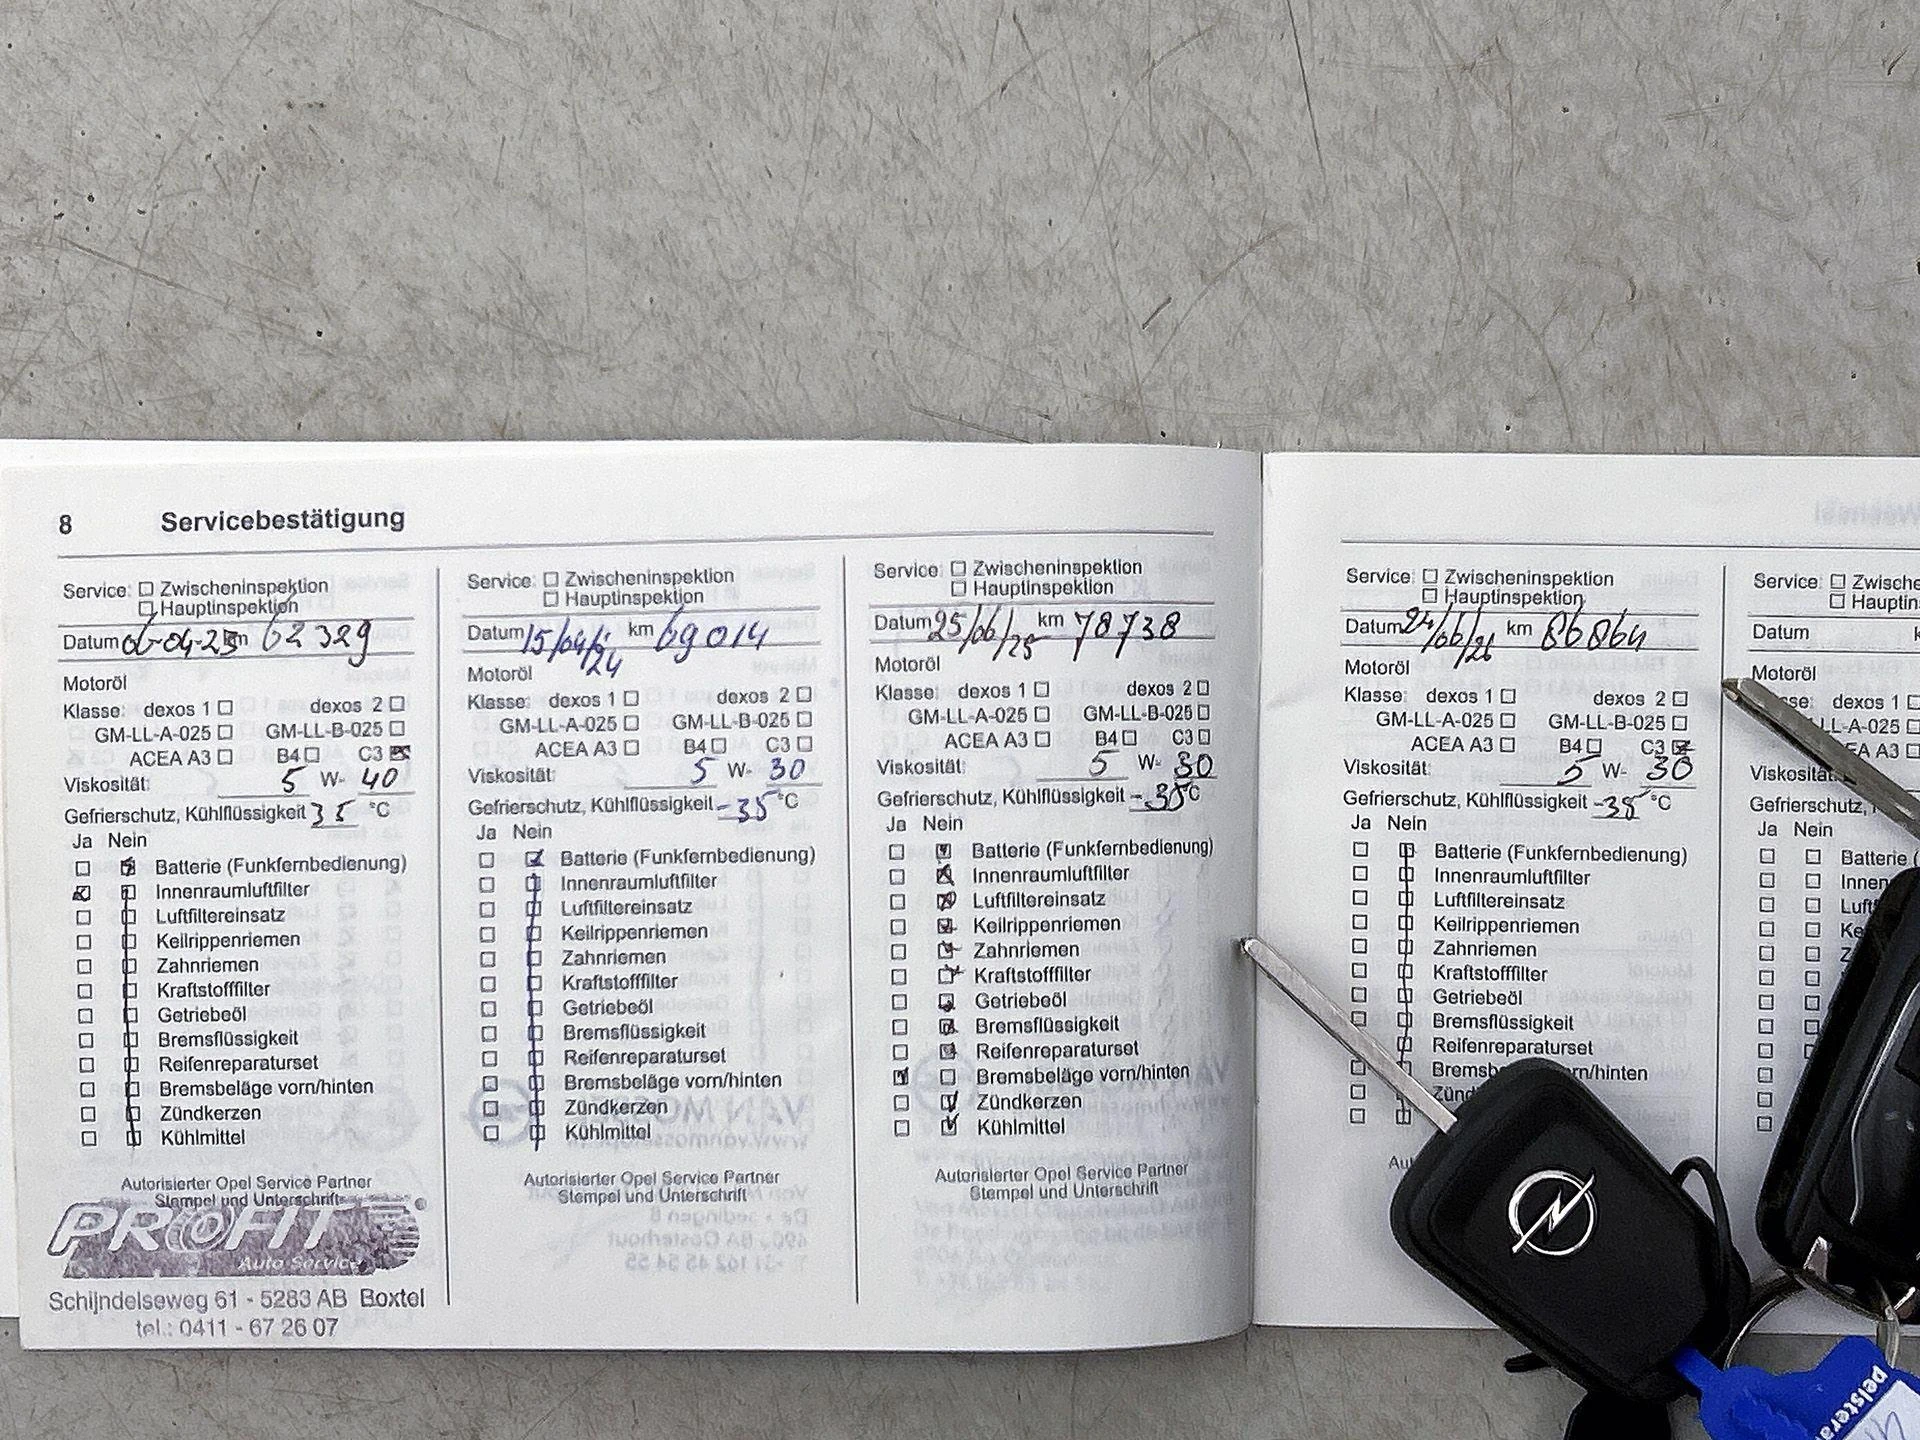 8 Servicebestätigung
Service: Zwischeninspektion
Hauptinspektion
Datum 06-04-23 km 62329
Motoröl
Klasse: dexos 1 dexos 2
GM-LL-A-025 GM-LL-B-025
ACEA A3 B4 C3
Viskosität: 5 W- 40
Gefrierschutz, Kühlflüssigkeit 35 °C
Ja Nein
Batterie (Funkfernbedienung)
Innenraumluftfilter
Luftfiltereinsatz
Keilrippenriemen
Zahnriemen
Kraftstofffilter
Getriebeöl
Bremsflüssigkeit
Reifenreparaturset
Bremsbeläge vorn/hinten
Zündkerzen
Kühlmittel
Autorisierter Opel Service Partner
Stempel und Unterschrift
PROFIT
Auto Service
Schijndelseweg 61 - 5283 AB Boxtel
tel.: 0411 - 67 26 07
Service: Zwischeninspektion
Hauptinspektion
Datum 15/04/24 km 69014
Motoröl
Klasse: dexos 1 dexos 2
GM-LL-A-025 GM-LL-B-025
ACEA A3 B4 C3
Viskosität: 5 W- 30
Gefrierschutz, Kühlflüssigkeit -35 °C
Ja Nein
Batterie (Funkfernbedienung)
Innenraumluftfilter
Luftfiltereinsatz
Keilrippenriemen
Zahnriemen
Kraftstofffilter
Getriebeöl
Bremsflüssigkeit
Reifenreparaturset
Bremsbeläge vorn/hinten
Zündkerzen
Kühlmittel
Autorisierter Opel Service Partner
Stempel und Unterschrift
Service: Zwischeninspektion
Hauptinspektion
Datum 25/06/25 km 78738
Motoröl
Klasse: dexos 1 dexos 2
GM-LL-A-025 GM-LL-B-025
ACEA A3 B4 C3
Viskosität: 5 W- 30
Gefrierschutz, Kühlflüssigkeit -35 °C
Ja Nein
Batterie (Funkfernbedienung)
Innenraumluftfilter
Luftfiltereinsatz
Keilrippenriemen
Zahnriemen
Kraftstofffilter
Getriebeöl
Bremsflüssigkeit
Reifenreparaturset
Bremsbeläge vorn/hinten
Zündkerzen
Kühlmittel
Autorisierter Opel Service Partner
Stempel und Unterschrift
Service: Zwischeninspektion
Hauptinspektion
Datum 24/06/26 km 86864
Motoröl
Klasse: dexos 1 dexos 2
GM-LL-A-025 GM-LL-B-025
ACEA A3 B4 C3
Viskosität: 5 W- 30
Gefrierschutz, Kühlflüssigkeit -38 °C
Ja Nein
Batterie (Funkfernbedienung)
Innenraumluftfilter
Luftfiltereinsatz
Keilrippenriemen
Zahnriemen
Kraftstofffilter
Getriebeöl
Bremsflüssigkeit
Reifenreparaturset
Bremsb rn/hinten
Zünd
Au
Service: Zwische
Hauptin
Datum k
Motoröl
sse: dexos 1
LL-A-025
EA A3
Viskosität:
Gefriersch
Ja Nein
Batterie (
Innen
Luft
Ke
Z
pelstera